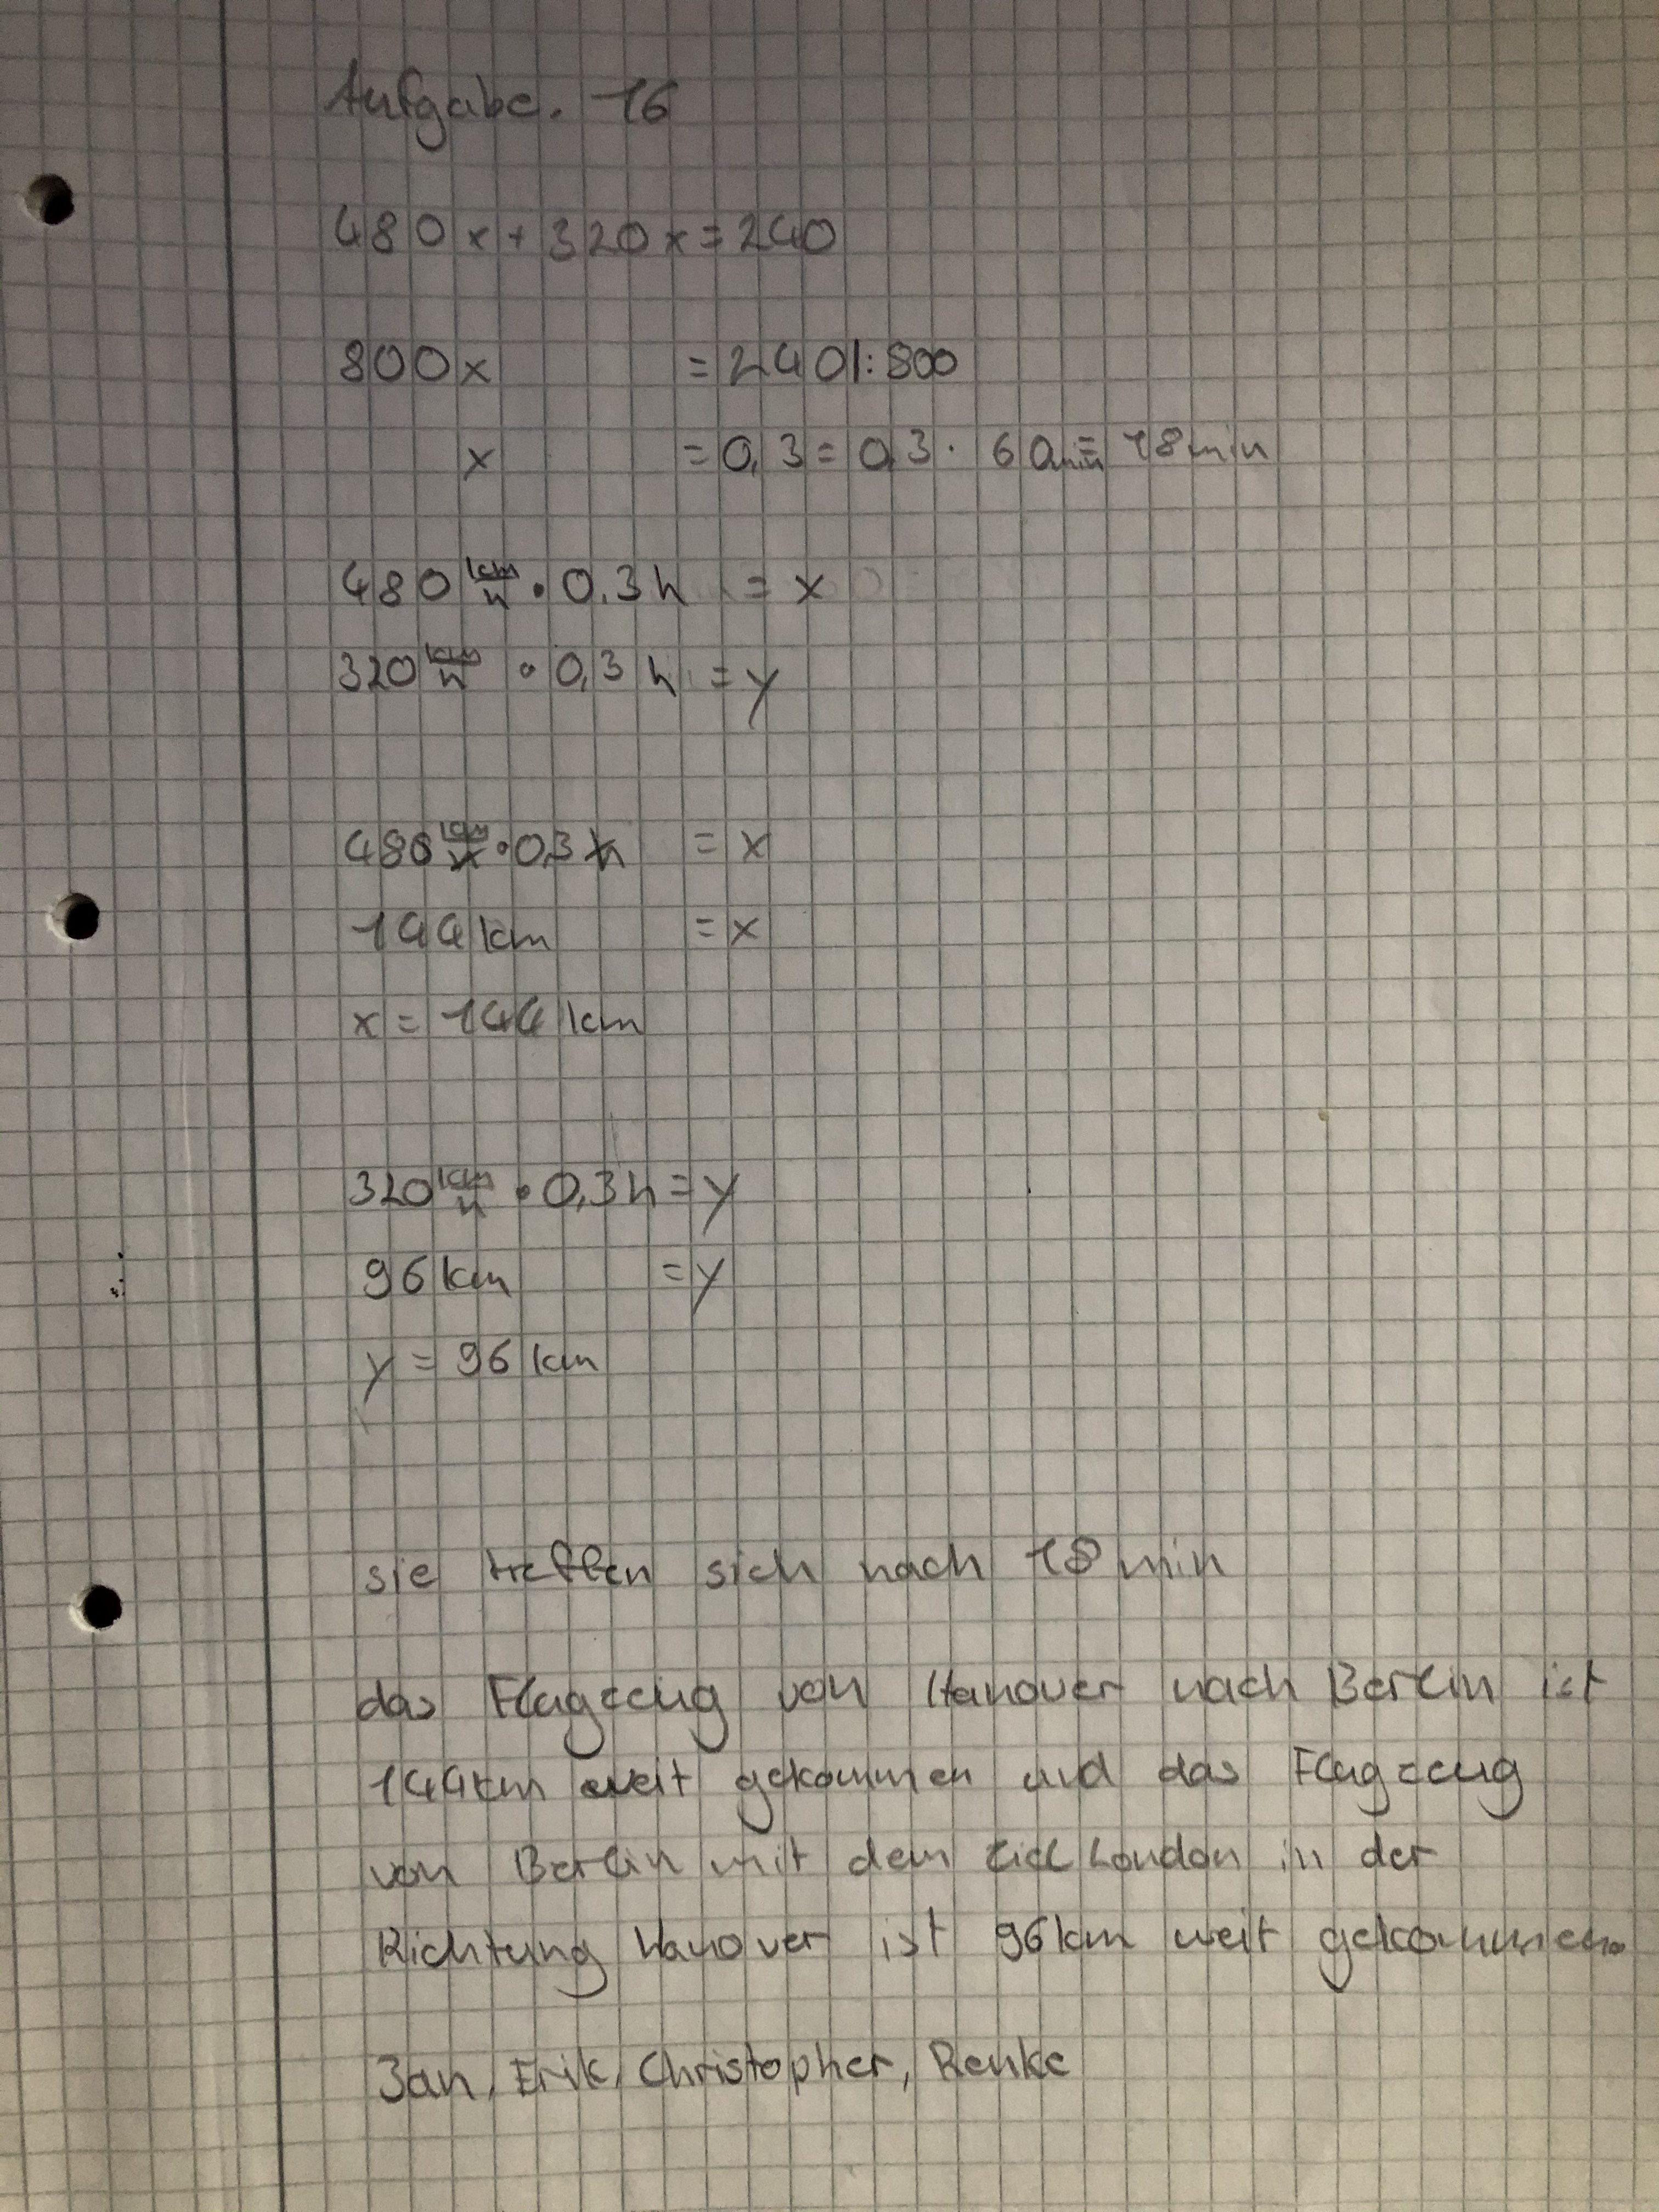 Aufgabe. 16
480x+320x=240
800x = 240|:800
x = 0,3 = 0,3 · 60min = 18min
480 km/h · 0,3h = x
320 km/h · 0,3h = y
480 km/h · 0,3h = x
144km = x
x = 144km
320 km/h · 0,3h = y
96km = y
y = 96km
sie treffen sich nach 18min
das Flugzeug von Hanover nach Berlin ist
144km weit gekommen und das Flugzeug
von Berlin mit dem Ziel London in der
Richtung Hanover ist 96km weit gekommen.
Jan, Erik, Christopher, Renke